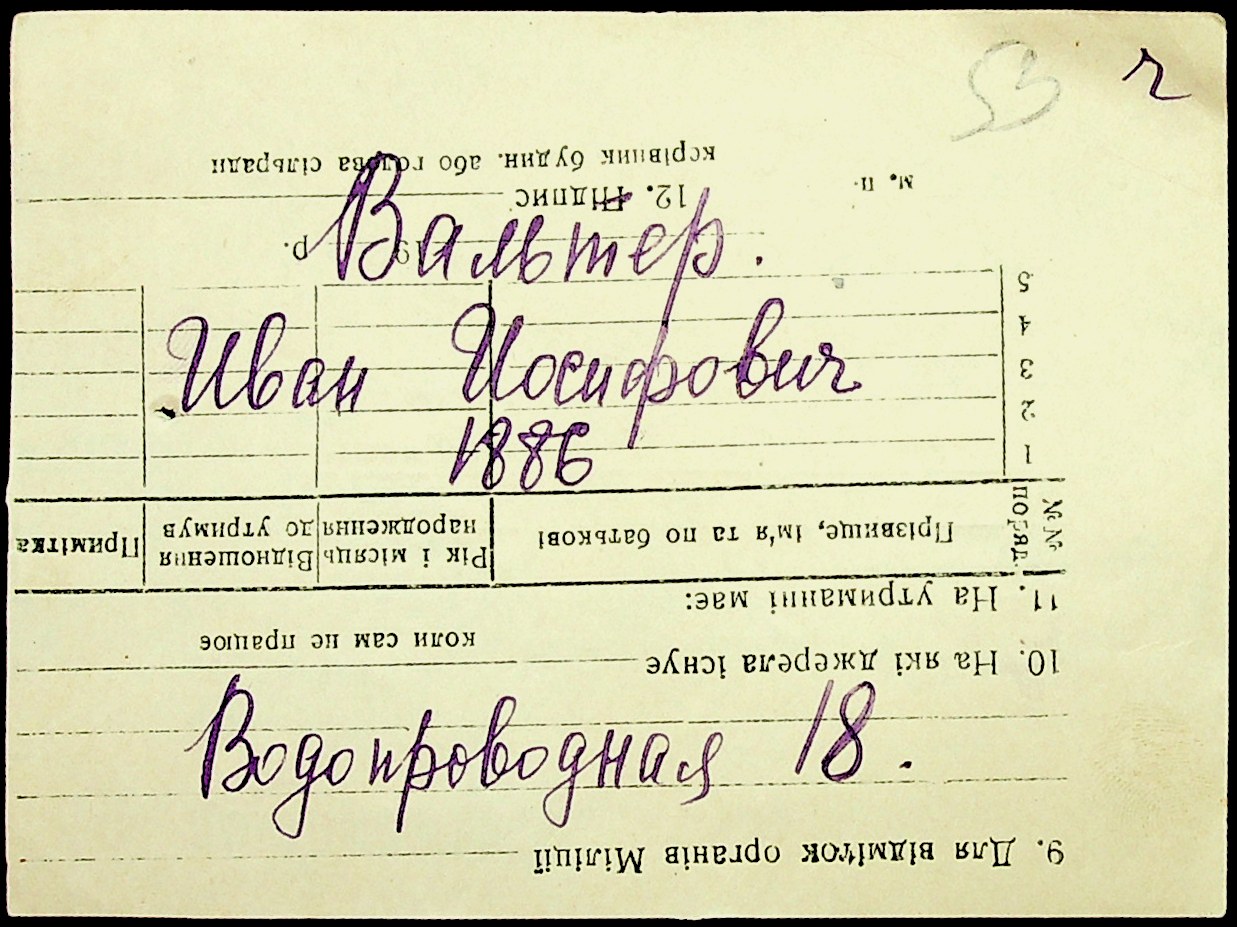 53 ч
Вальтер.
Иван Иосифович
1886
Водопроводная 18.
9. Для відміток органів Міліції
10. На які джерела існує
коли сам не працює
11. На утриманні має:
№№ поряд. Прізвище, ім'я та по батькові Рік і місяць народження Відношення до утримув Примітка
1
2
3
4
5
19 р.
м. п. 12. Підпис
керівник будин. або голова сільради